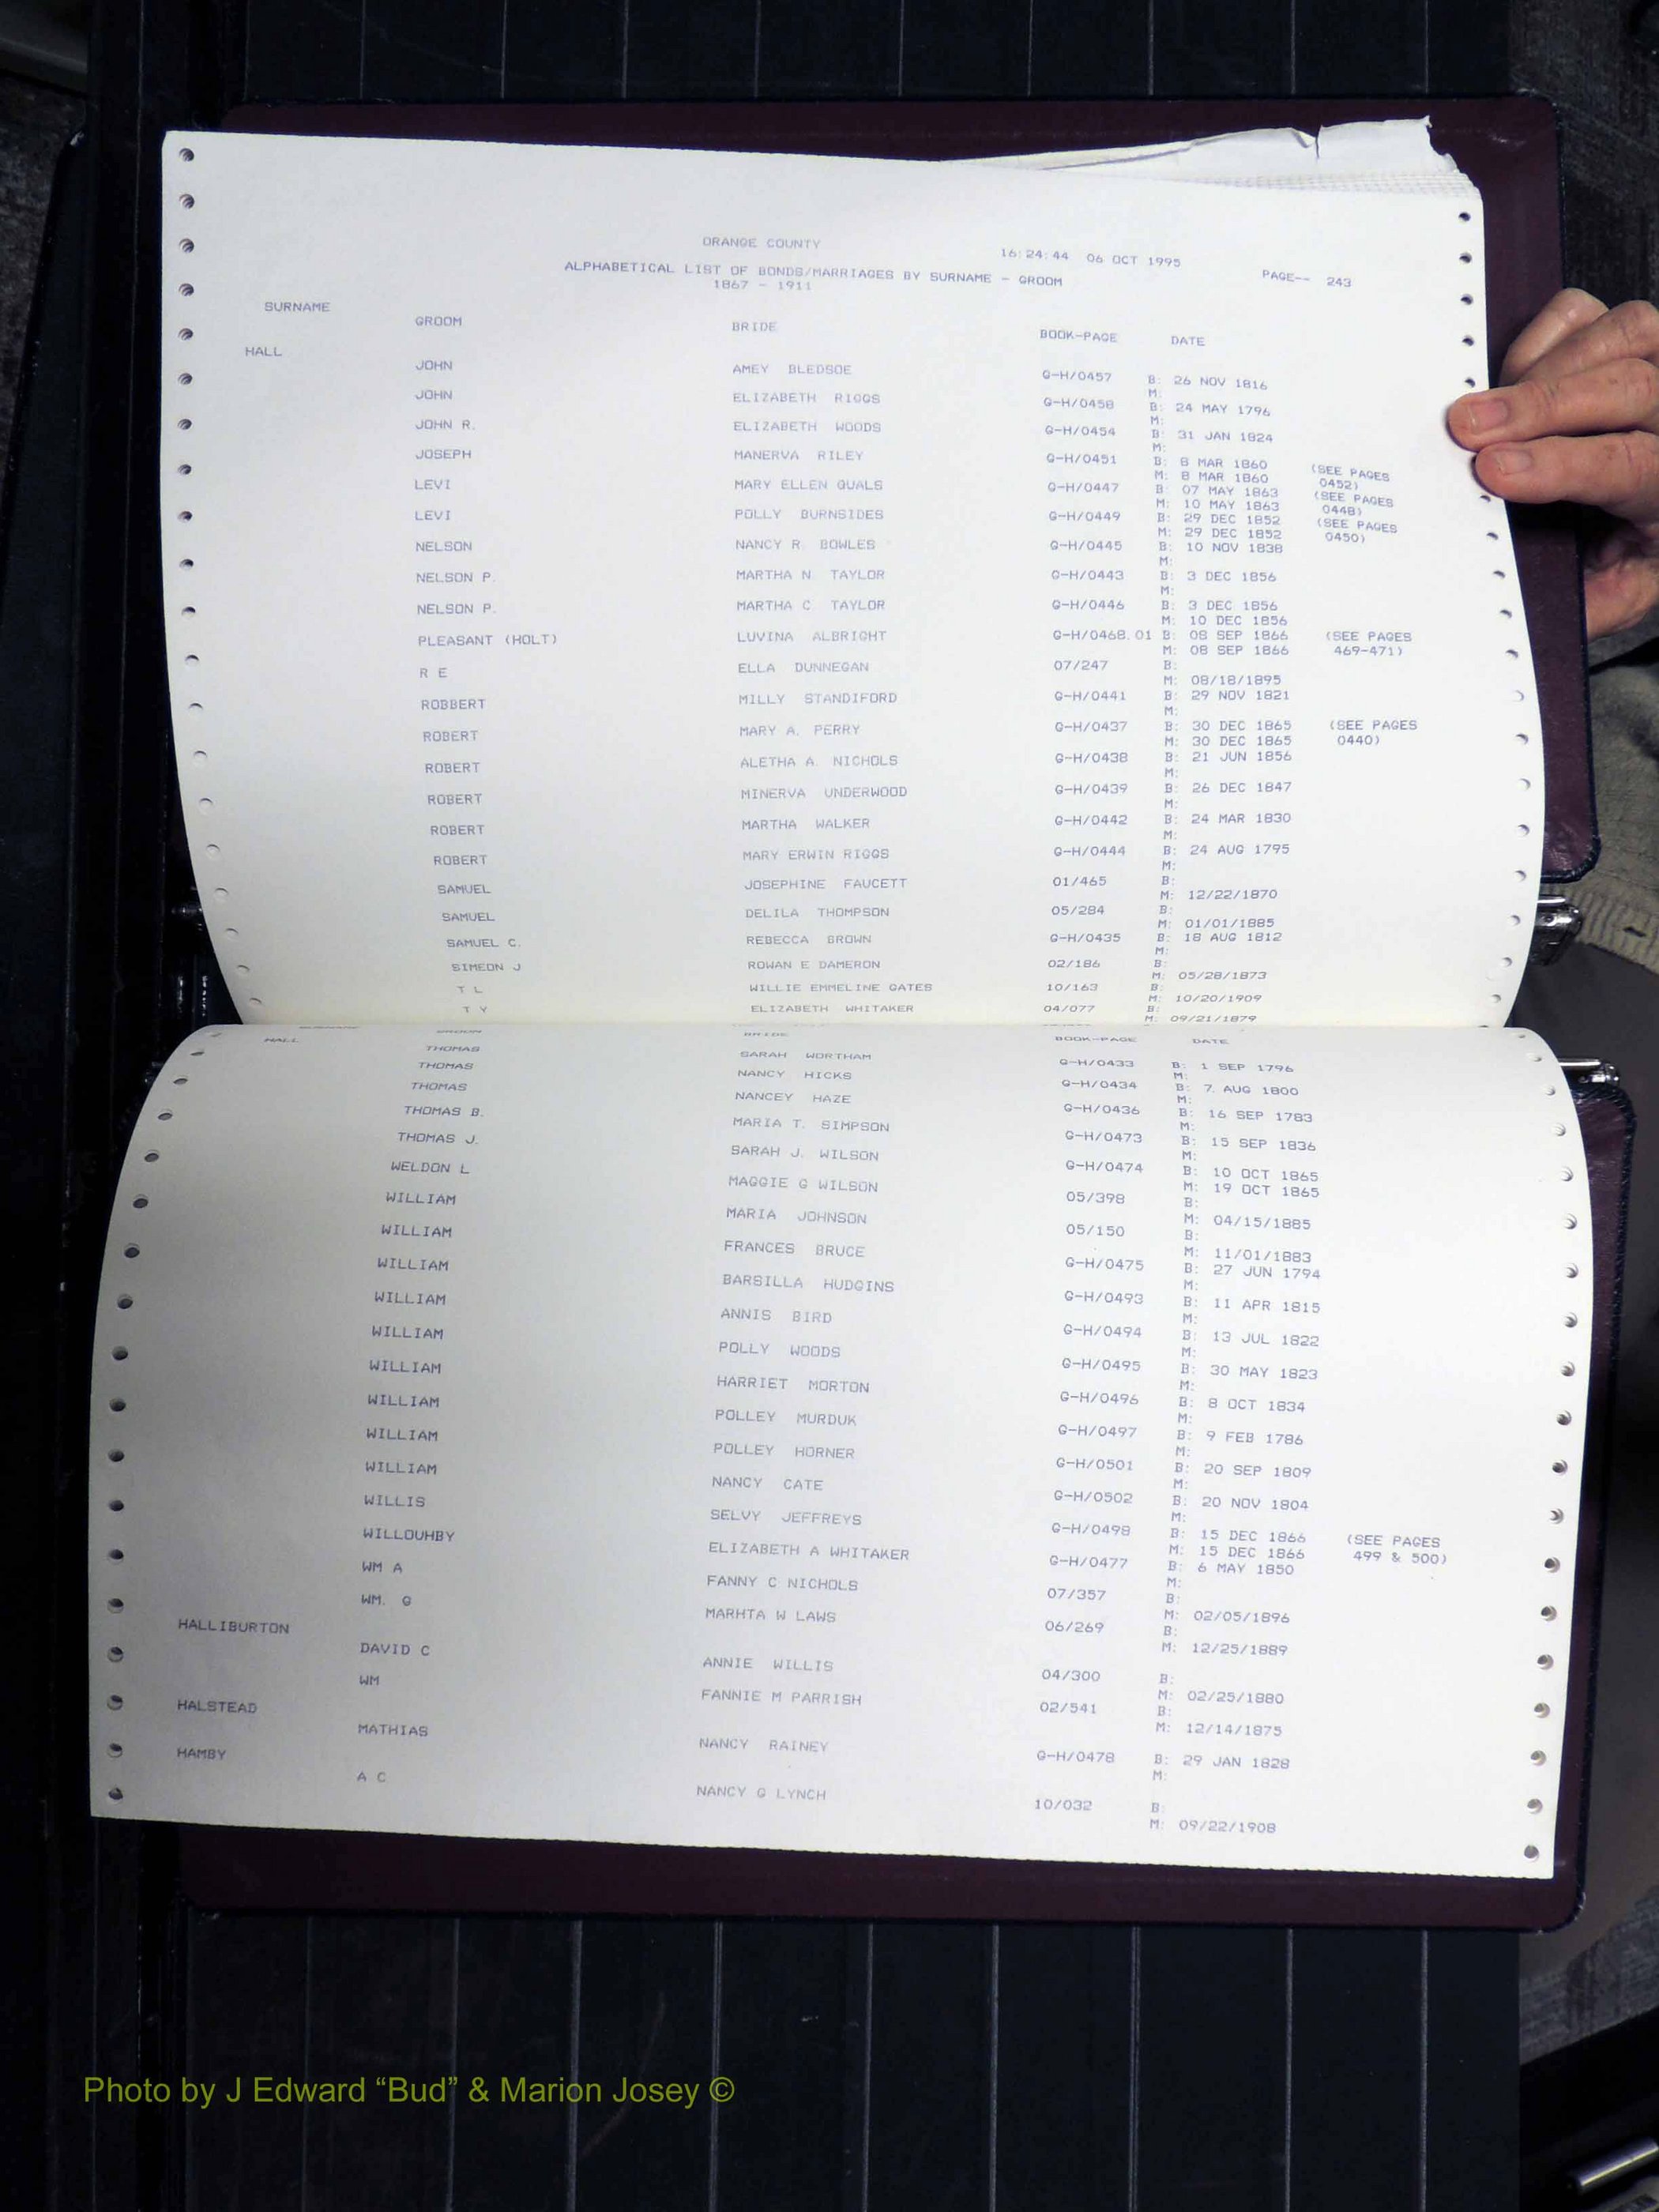 ORANGE COUNTY 16:24:44 06 OCT 1995
ALPHABETICAL LIST OF BONDS/MARRIAGES BY SURNAME - GROOM PAGE-- 243
1867 - 1911
SURNAME GROOM BRIDE BOOK-PAGE DATE
HALL
JOHN AMEY BLEDSOE G-H/0457 B: 26 NOV 1816
M:
JOHN ELIZABETH RIGGS G-H/0458 B: 24 MAY 1796
M:
JOHN R. ELIZABETH WOODS G-H/0454 B: 31 JAN 1824
M:
JOSEPH MANERVA RILEY G-H/0451 B: 8 MAR 1860 (SEE PAGES
M: 8 MAR 1860 0452)
LEVI MARY ELLEN QUALS G-H/0447 B: 07 MAY 1863 (SEE PAGES
M: 10 MAY 1863 0448)
LEVI POLLY BURNSIDES G-H/0449 B: 29 DEC 1852 (SEE PAGES
M: 29 DEC 1852 0450)
NELSON NANCY R. BOWLES G-H/0445 B: 10 NOV 1838
M:
NELSON P. MARTHA N. TAYLOR G-H/0443 B: 3 DEC 1856
M:
NELSON P. MARTHA C. TAYLOR G-H/0446 B: 3 DEC 1856
M: 10 DEC 1856
PLEASANT (HOLT) LUVINA ALBRIGHT G-H/0468.01 B: 08 SEP 1866 (SEE PAGES
M: 08 SEP 1866 469-471)
R E ELLA DUNNEGAN 07/247 B:
M: 08/18/1895
ROBBERT MILLY STANDIFORD G-H/0441 B: 29 NOV 1821
M:
ROBERT MARY A. PERRY G-H/0437 B: 30 DEC 1865 (SEE PAGES
M: 30 DEC 1865 0440)
ROBERT ALETHA A. NICHOLS G-H/0438 B: 21 JUN 1856
M:
ROBERT MINERVA UNDERWOOD G-H/0439 B: 26 DEC 1847
M:
ROBERT MARTHA WALKER G-H/0442 B: 24 MAR 1830
M:
ROBERT MARY ERWIN RIGGS G-H/0444 B: 24 AUG 1795
M:
SAMUEL JOSEPHINE FAUCETT 01/465 B:
M: 12/22/1870
SAMUEL DELILA THOMPSON 05/284 B:
M: 01/01/1885
SAMUEL C. REBECCA BROWN G-H/0435 B: 18 AUG 1812
M:
SIMEON J ROWAN E DAMERON 02/186 B:
M: 05/28/1873
T L WILLIE EMMELINE GATES 10/163 B:
M: 10/20/1909
T Y ELIZABETH WHITAKER 04/077 B:
M: 09/21/1879
SURNAME GROOM BRIDE BOOK-PAGE DATE
HALL
THOMAS SARAH WORTHAM G-H/0433 B: 1 SEP 1796
M:
THOMAS NANCY HICKS G-H/0434 B: 7 AUG 1800
M:
THOMAS NANCEY HAZE G-H/0436 B: 16 SEP 1783
M:
THOMAS B. MARIA T. SIMPSON G-H/0473 B: 15 SEP 1836
M:
THOMAS J. SARAH J. WILSON G-H/0474 B: 10 OCT 1865
M: 19 OCT 1865
WELDON L MAGGIE G WILSON 05/398 B:
M: 04/15/1885
WILLIAM MARIA JOHNSON 05/150 B:
M: 11/01/1883
WILLIAM FRANCES BRUCE G-H/0475 B: 27 JUN 1794
M:
WILLIAM BARSILLA HUDGINS G-H/0493 B: 11 APR 1815
M:
WILLIAM ANNIS BIRD G-H/0494 B: 13 JUL 1822
M:
WILLIAM POLLY WOODS G-H/0495 B: 30 MAY 1823
M:
WILLIAM HARRIET MORTON G-H/0496 B: 8 OCT 1834
M:
WILLIAM POLLEY MURDUK G-H/0497 B: 9 FEB 1786
M:
WILLIAM POLLEY HORNER G-H/0501 B: 20 SEP 1809
M:
WILLIAM NANCY CATE G-H/0502 B: 20 NOV 1804
M:
WILLIS SELVY JEFFREYS G-H/0498 B: 15 DEC 1866 (SEE PAGES
M: 15 DEC 1866 499 & 500)
WILLOUHBY ELIZABETH A WHITAKER G-H/0477 B: 6 MAY 1850
M:
WM A FANNY C NICHOLS 07/357 B:
M: 02/05/1896
WM. G MARHTA W LAWS 06/269 B:
M: 12/25/1889
HALLIBURTON
DAVID C ANNIE WILLIS 04/300 B:
M: 02/25/1880
WM FANNIE M PARRISH 02/541 B:
M: 12/14/1875
HALSTEAD
MATHIAS NANCY RAINEY G-H/0478 B: 29 JAN 1828
M:
HAMBY
A C NANCY G LYNCH 10/032 B:
M: 09/22/1908
Photo by J Edward “Bud” & Marion Josey ©